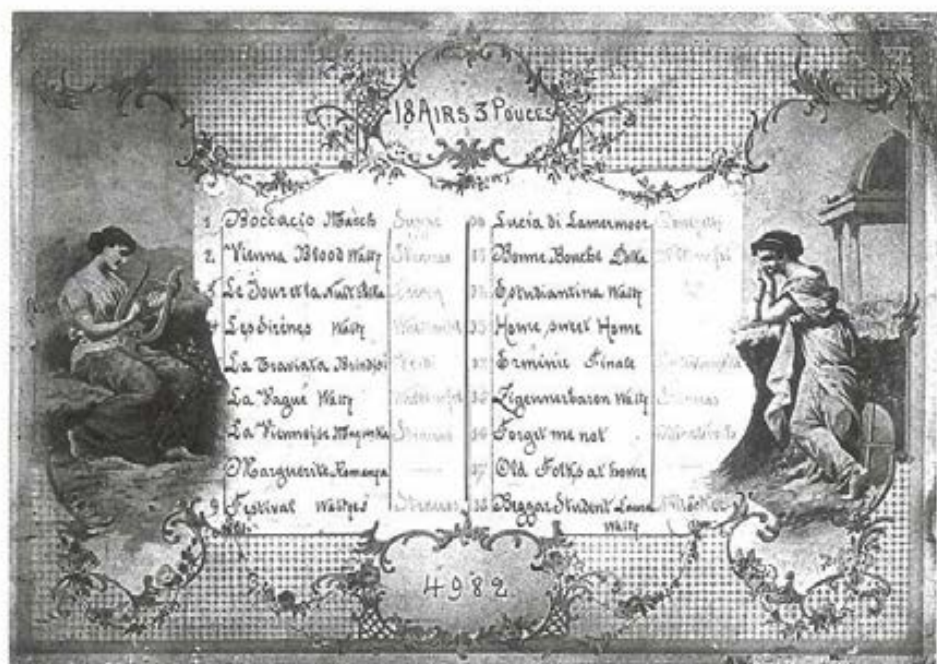 18 AIRS 3 POUCES
1 Boccacio March Suppé
2. Vienna Blood Waltz Strauss
3 Le Jour et la Nuit Polka Lecocq
4 Les Sirènes Waltz Waldteufel
La Traviata Brindisi Verdi
La Vague Waltz Waldteufel
La Viennoise Mazurka Strauss
Marguerite Romanza
9 Festival Waltzes Strauss
10 Lucia di Lamermoor Donizetti
11 Bonne Bouche Polka Waldteufel
12 Estudiantina Waltz
13 Home, sweet Home
14 Erminie Finale
15 Zigeunerbaron Waltz Strauss
16 Forget me not
17 Old Folks at home
18 Beggar Student Laura Millöcker
Waltz
4982